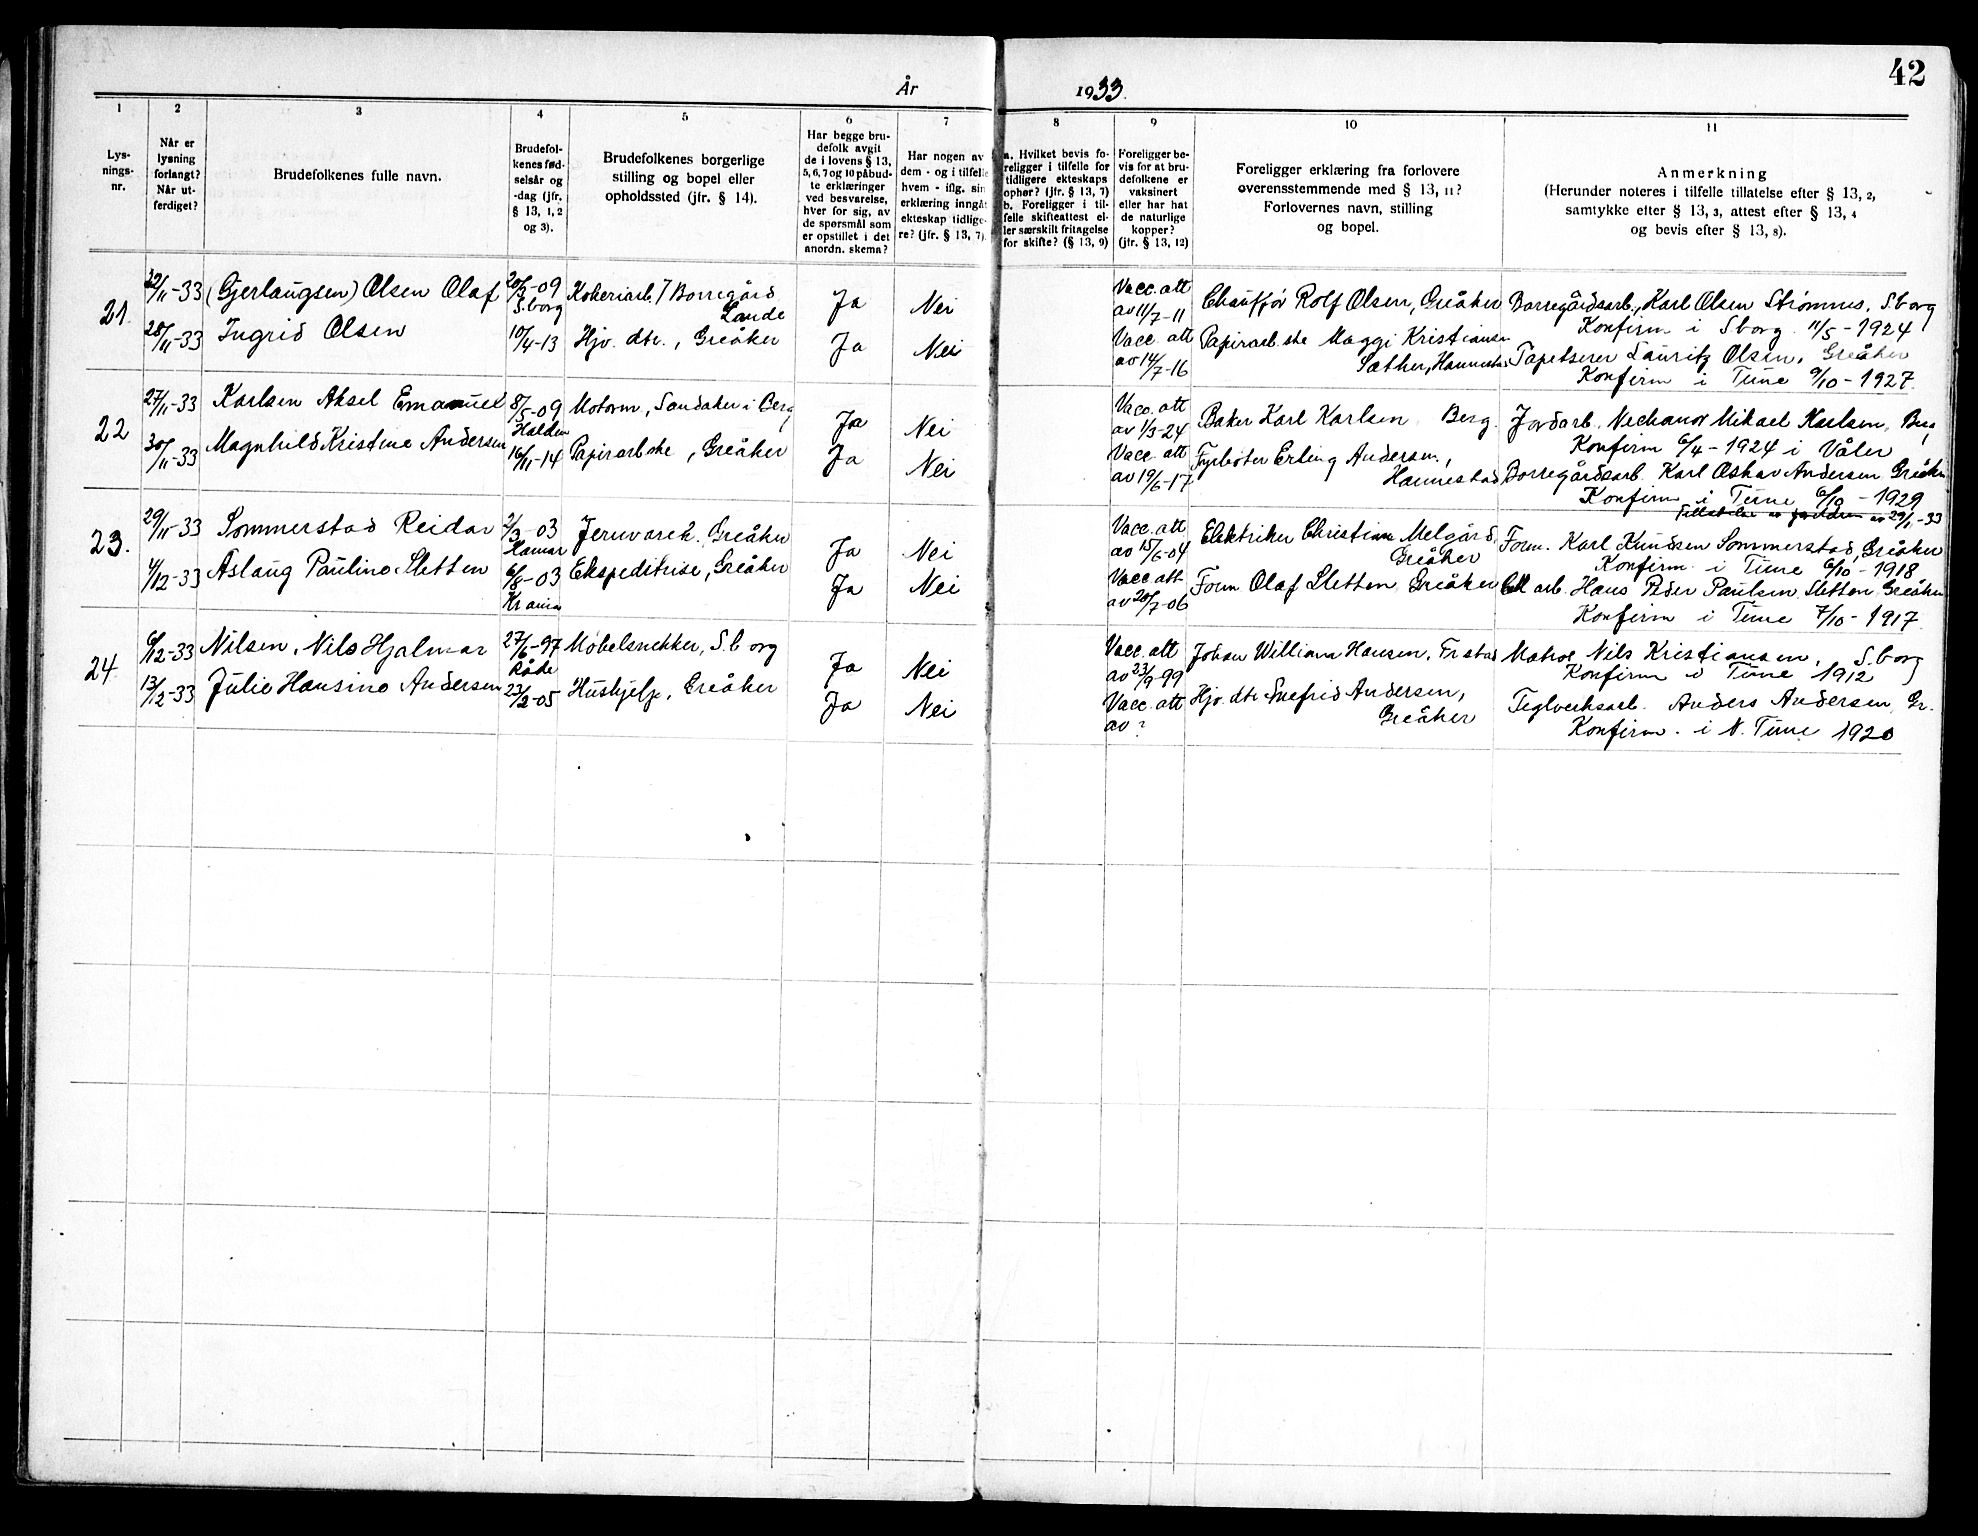 42
År 1933.
1 2 3 4 5 6 7 8 9 10 11
Lys-
nings-
nr.
Når er
lysning
forlangt?
Når ut-
ferdiget?
Brudefolkenes fulle navn.
Brudefol-
kenes fød-
selsår og
-dag (jfr.
§ 13, 1, 2
og 3).
Brudefolkenes borgerlige
stilling og bopel eller
opholdssted (jfr. § 14).
Har begge bru-
defolk avgit
de i lovens § 13,
5, 6, 7 og 10 påbud-
te erklæringer
ved besvarelse,
hver for sig, av
de spørsmål som
er opstillet i det
anordn. skema?
Har nogen av
dem - og i tilfelle
hvem - iflg. sin
erklæring inngåt
ekteskap tidlige-
re? (jfr. § 13, 7).
a. Hvilket bevis fo-
religger i tilfelle for
tidligere ekteskaps
ophør? (jfr. § 13, 7)
b. Foreligger i til-
felle skifteattest el-
ler særskilt fritagelse
for skifte? (§ 13, 9)
Foreligger be-
vis for at bru-
defolkene er
vaksinert
eller har hat
de naturlige
kopper?
(jfr. § 13, 12)
Foreligger erklæring fra forlovere
overensstemmende med § 13, 11?
Forlovernes navn, stilling
og bopel.
Anmerkning
(Herunder noteres i tilfelle tillatelse efter § 13, 2,
samtykke efter § 13, 3, attest efter § 13, 4
og bevis efter § 13, 8).
21.
22/11-33 (Gjerlaugsen) Olsen Olaf 20/3-09 S.borg Kokeriarb. / Borregård Lande Ja Nei Vacc. att av 11/7-11 Chauffør Rolf Olsen, Greåker Borregårdsarb., Karl Olsen Strømnes, S.borg
Konfirm i Sborg. 11/5-1924
28/11-33 Ingrid Olsen 10/4-13 Hjv. dtr., Greåker Ja Nei Vacc. att av 14/7-16 Papirarb.ske Maggi Kristiansen Sæther, Hannestad Tapetserer Lauritz Olsen, Greåker
Konfirm i Tune 9/10-1927.
22
27/11-33 Karlsen Aksel Emanuel 8/5-09 Halden Motorm, Sandaker i Berg Ja Nei Vacc. att av 1/3-24 Baker Karl Karlsen Berg. Jordarb. Mikael Karlsen, Berg
Konfirm 6/4-1924 i Våler
30/11-33 Magnhild Kristine Andersen 16/11-14 Papirarb.ske, Greåker Ja Nei Vacc. att av 19/6-17 Fyrbøter Erling Andersen, Hannestad Borregårdsarb. Karl Oskar Andersen Greåker
Konfirm i Tune 6/10-1929
Tillatelse av foreldren av 29/11-33
23.
29/11-33 Sommerstad Reidar 2/3-03 Hamar Jernvareh. Greåker Ja Nei Vacc. att av 15/6-04 Elektriker Christian Melgård Greåker Form. Karl Knudsen Sommerstad, Greåker
Konfirm. i Tune 6/10-1918
4/12-33 Aslaug Pauline Sletten 6/8-03 Ekspeditrise, Greåker Ja Nei Vacc att av 20/7-06 Form Olaf Sletten Greåker Cell arb. Hans Peder Paulsen Sletten, Greåker
Konfirm i Tune 7/10-1917
24
6/12-33 Nilsen, Nils Hjalmar 27/6-97 Råde Møbelsnekker, S.borg Ja Nei Vacc. att av 23/9-99 Johan William Hansen, Fr.stad Matros Nils Kristiansen, S.borg
Konfirm i Tune 1912
13/12-33 Julie Hansine Andersen 23/2-05 Hushjelp, Greåker Ja Nei Vacc. att av ? Hjv. dtr. Snefrid Andersen, Greåker Teglverksarb. Anders Andersen, Gr.
Konfirm. i N. Tune 1920